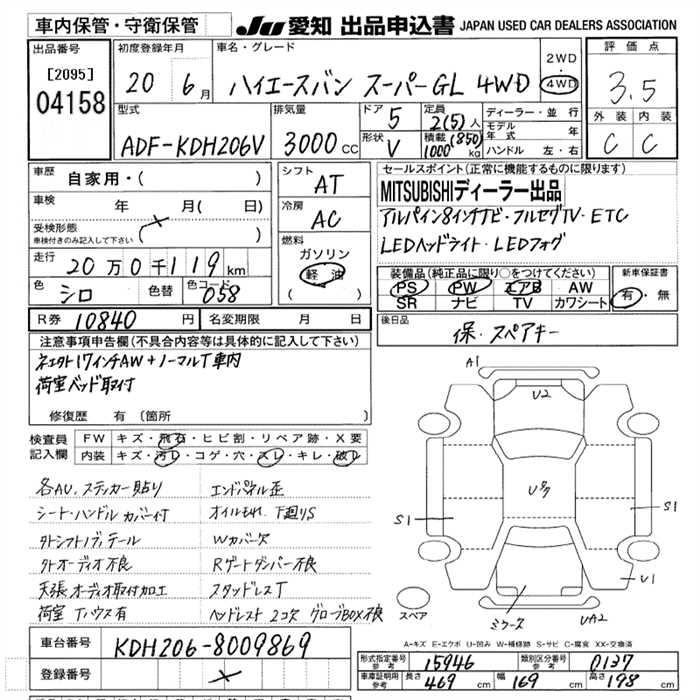 車内保管・守衛保管
JU 愛知 出品申込書 JAPAN USED CAR DEALERS ASSOCIATION
出品番号
[2095]
04158
初度登録年月
20年6月
車名・グレード
ハイエースバン スーパーGL 4WD
2WD
4WD
評価点
3.5
外装 内装
C C
型式
ADF-KDH206V
排気量
3000cc
ドア 5
形状 V
定員 2(5)人
積載 (850) 1000 kg
ディーラー・並行
モデル年式 年
ハンドル 左・右
車歴 自家用・( )
車検 年 月( 日)
受検形態
車検付きのみ記入して下さい ( )
走行 20万0千119km
色 シロ 色替 色コード 058
シフト AT
冷房 AC
燃料
ガソリン
軽油
( )
セールスポイント(正常に機能するものに限ります)
MITSUBISHIディーラー出品
アルパイン8インチナビ・フルセグTV・ETC
LEDヘッドライト・LEDフォグ
装備品(純正品に限り○をつけてください)
PS PW エアB AW
SR ナビ TV カワシート
新車保証書
有・無
R券 10840円 名変期限 月 日
後日品
保・スペアキー
注意事項申告欄(不具合内容等は具体的に記入して下さい)
ネエクト17インチAW+ノーマルT車内
荷室ベッド取付
修復歴 有 〔箇所 〕
検査員記入欄
FW キズ・飛石・ヒビ割・リペア跡・X要
内装 キズ・汚レ・コゲ・穴・スレ・キレ・破レ
各AU.ステッカー貼り エンドパネル歪
シート・ハンドル カバー付 オイルもれ.下廻りS
タトシフトノブ.テール Wカバー欠
タトオーディオ不良 Rゲートダンパー不良
天張オーディオ取付加工 スタッドレスT
荷室 Tハウス有 ヘッドレスト2コ欠 グローブBOX不良
A1
U2
Uク
S1
S1
U1
スペア
ミラーズ
UA2
A-キズ E-エクボ U-凹み W-補修跡 S-サビ C-腐食 XX-交換済
車台番号 KDH206-8009869
登録番号
形式指定番号 参考 15946 類別区分番号 参考 0137
車庫証明用 参考 長さ 469cm 幅 169cm 高さ 198cm